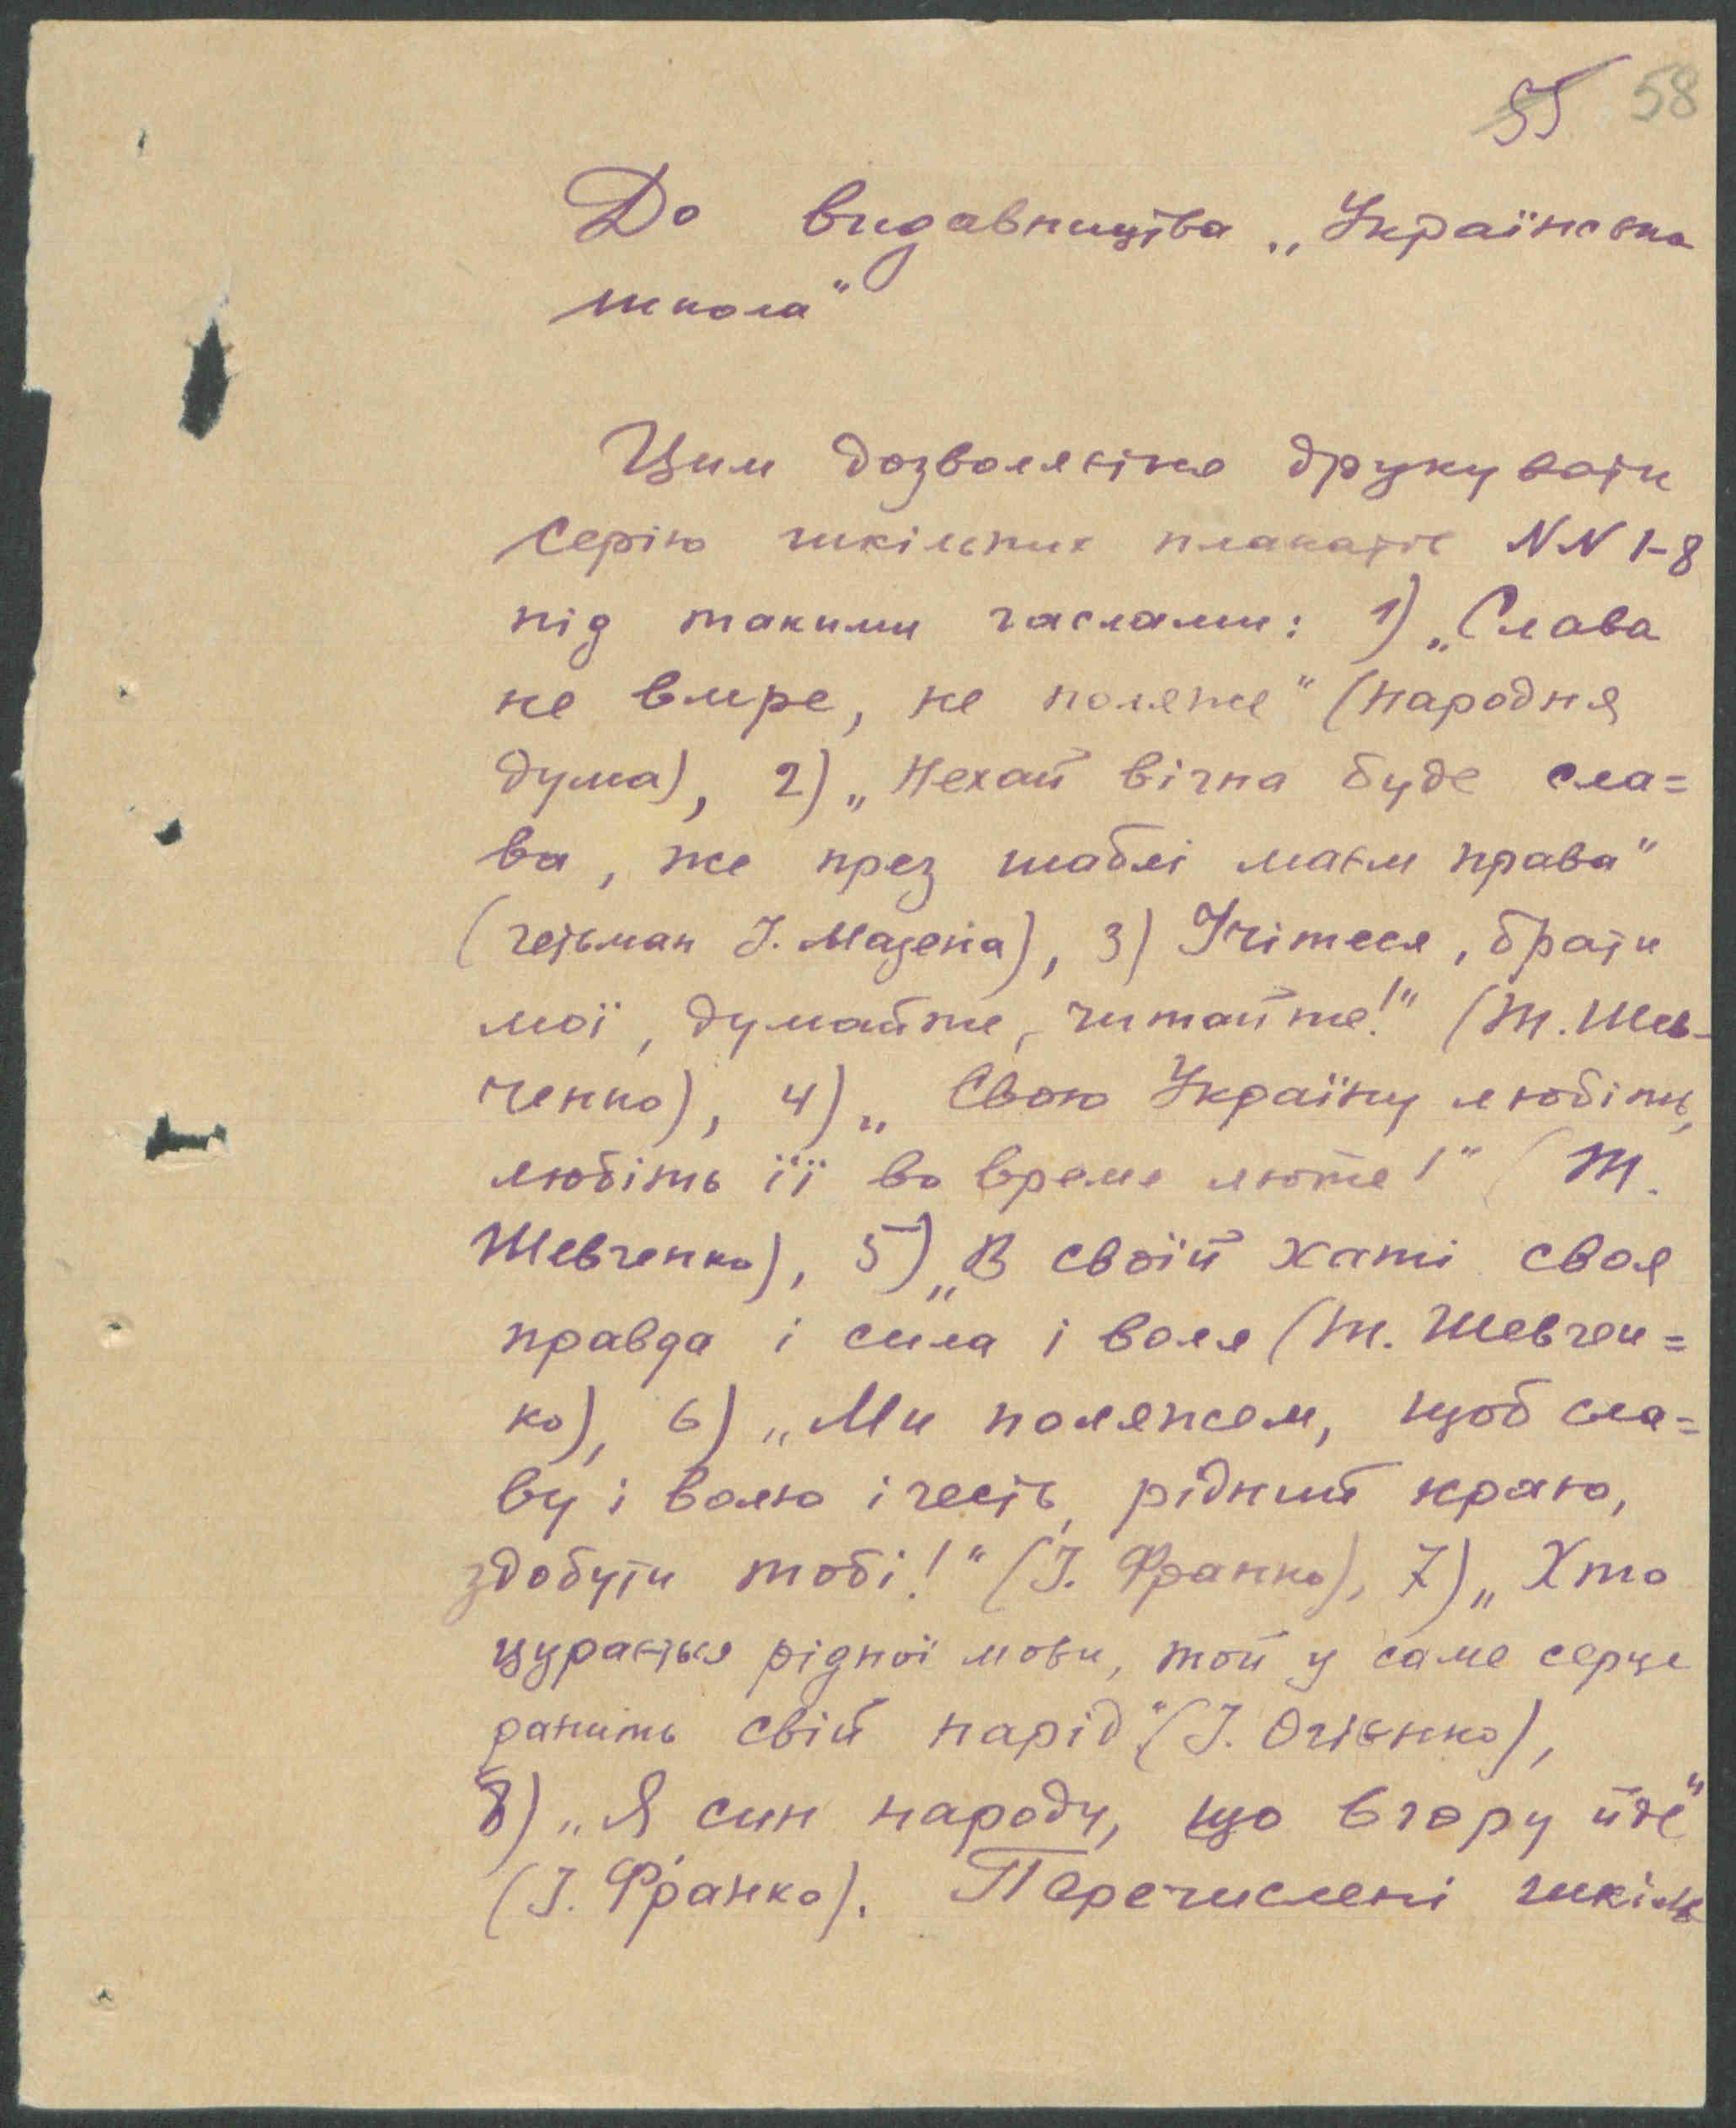 55 58
До видавництва „Українська
школа"
Цим дозволяється друкувати
серію шкільних плакатів NN 1-8
під такими гаслами: 1) „Слава
не вмре, не поляже" (народня
дума), 2) „Нехай вічна буде сла=
ва, же през шаблі маєм права"
(гетьман І. Мазепа), 3) Учітеся, брати
мої, думайте, читайте!" (Т. Шев-
ченко), 4) „Свою Україну любіть,
любіть її во время люте!" (Т.
Шевченко), 5) „В своїй хаті своя
правда і сила і воля (Т. Шевчен=
ко), 6) „Ми поляжем, щоб сла=
ву і волю і честь, рідний краю,
здобути тобі!" (І. Франко), 7) „Хто
цурається рідної мови, той у саме серце
ранить свій нарід" (І. Огієнко),
8) „Я син народу, що вгору йде"
(І. Франко). Перечислені шкіль